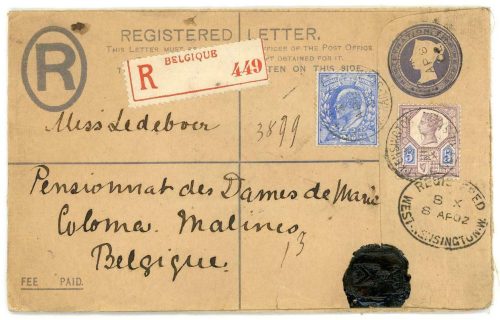 REGISTERED LETTER.
THIS LETTER MUST OFFICER OF THE POST OFFICE
OBTAINED FOR IT.
TEN ON THIS SIDE.
R
BELGIQUE
R 449
Miss Ledeboer
3899
Pensionnat des Dames de Marie
Coloma. Malines
Belgique.
13
FEE PAID.
5 5
REGISTERED
8 X
8 AP 02
WEST-KENSINGTON.W.